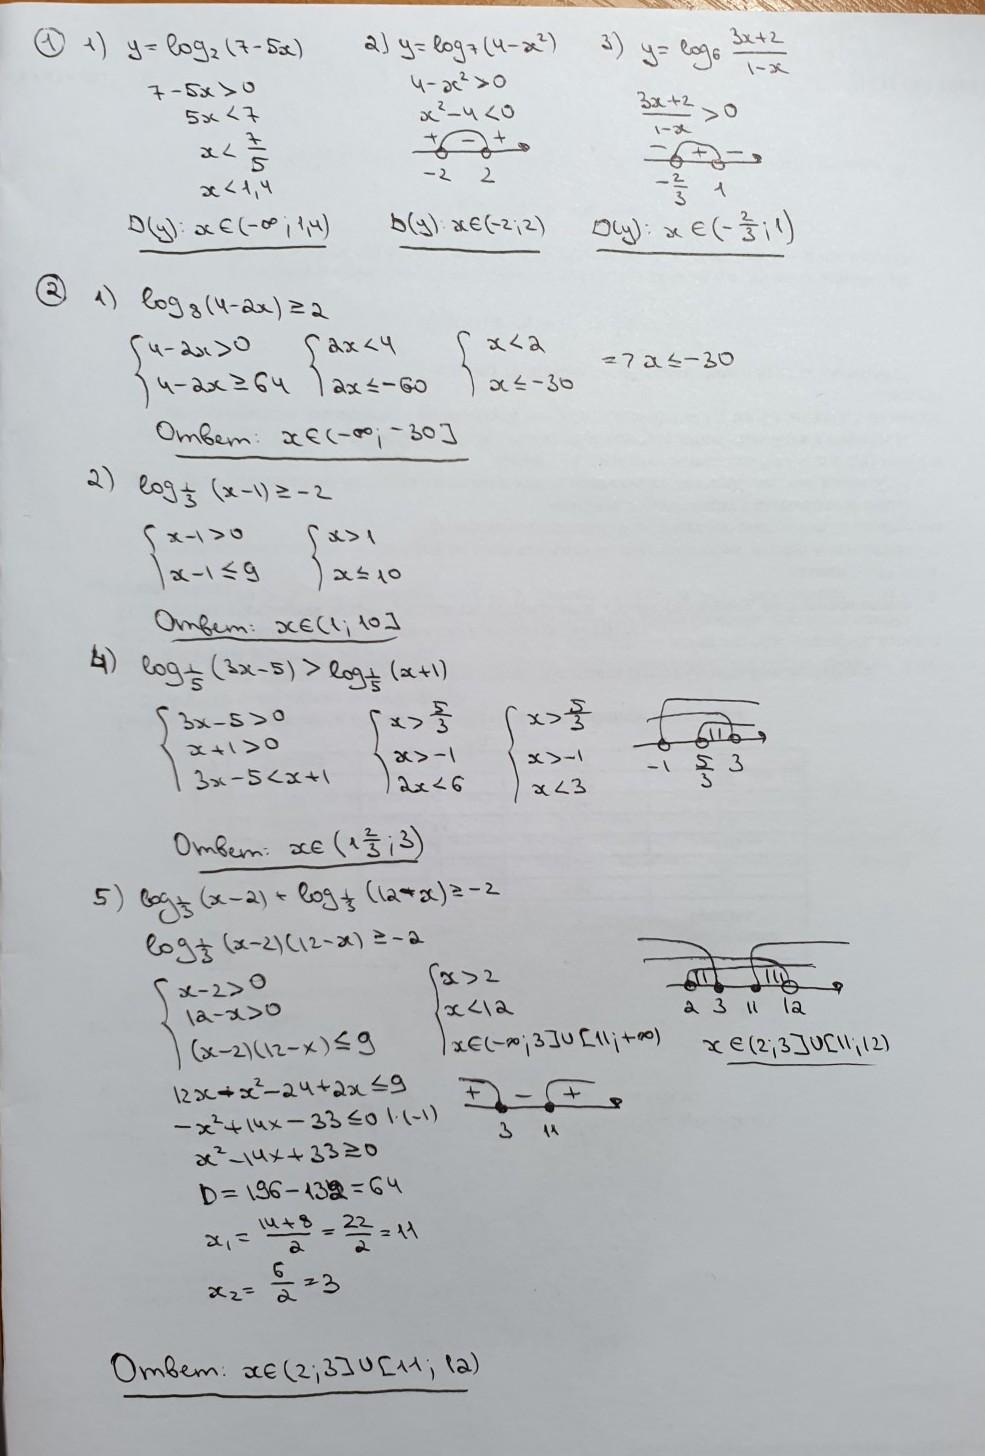 ① 1) y = log₂(7-5x)
7-5x>0
5x<7
x < 7/5
x<1,4
D(y): x∈(-∞; 1,4)
2) y = log₇(4-x²)
4-x²>0
x²-4<0
+ - +
-2 2
D(y): x∈(-2; 2)
3) y = log₆ (3x+2)/(1-x)
(3x+2)/(1-x) > 0
- + -
-2/3 1
D(y): x∈(-2/3; 1)
② 1) log₈(4-2x) ≥ 2
{ 4-2x>0 { 2x<4 { x<2 => x ≤ -30
4-2x ≥ 64 2x ≤ -60 x ≤ -30
Ответ: x∈(-∞; -30]
2) log_{1/3} (x-1) ≥ -2
{ x-1>0 { x>1
x-1 ≤ 9 x ≤ 10
Ответ: x∈(1; 10]
4) log_{1/5} (3x-5) > log_{1/5} (x+1)
{ 3x-5>0 { x > 5/3 { x > 5/3
x+1>0 x>-1 x>-1
3x-5<x+1 2x<6 x<3
-1 5/3 3
Ответ: x∈ (1 2/3; 3)
5) log_{1/3} (x-2) + log_{1/3} (12-x) ≥ -2
log_{1/3} (x-2)(12-x) ≥ -2
{ x-2>0 { x>2
12-x>0 x<12
(x-2)(12-x) ≤ 9 x∈(-∞; 3]∪[11; +∞)
2 3 11 12
x∈(2; 3]∪[11; 12)
12x-x²-24+2x ≤ 9
-x²+14x-33 ≤ 0 |·(-1)
x²-14x+33 ≥ 0
+ - +
3 11
D = 196-132 = 64
x₁ = (14+8)/2 = 22/2 = 11
x₂ = 6/2 = 3
Ответ: x∈(2; 3]∪[11; 12)